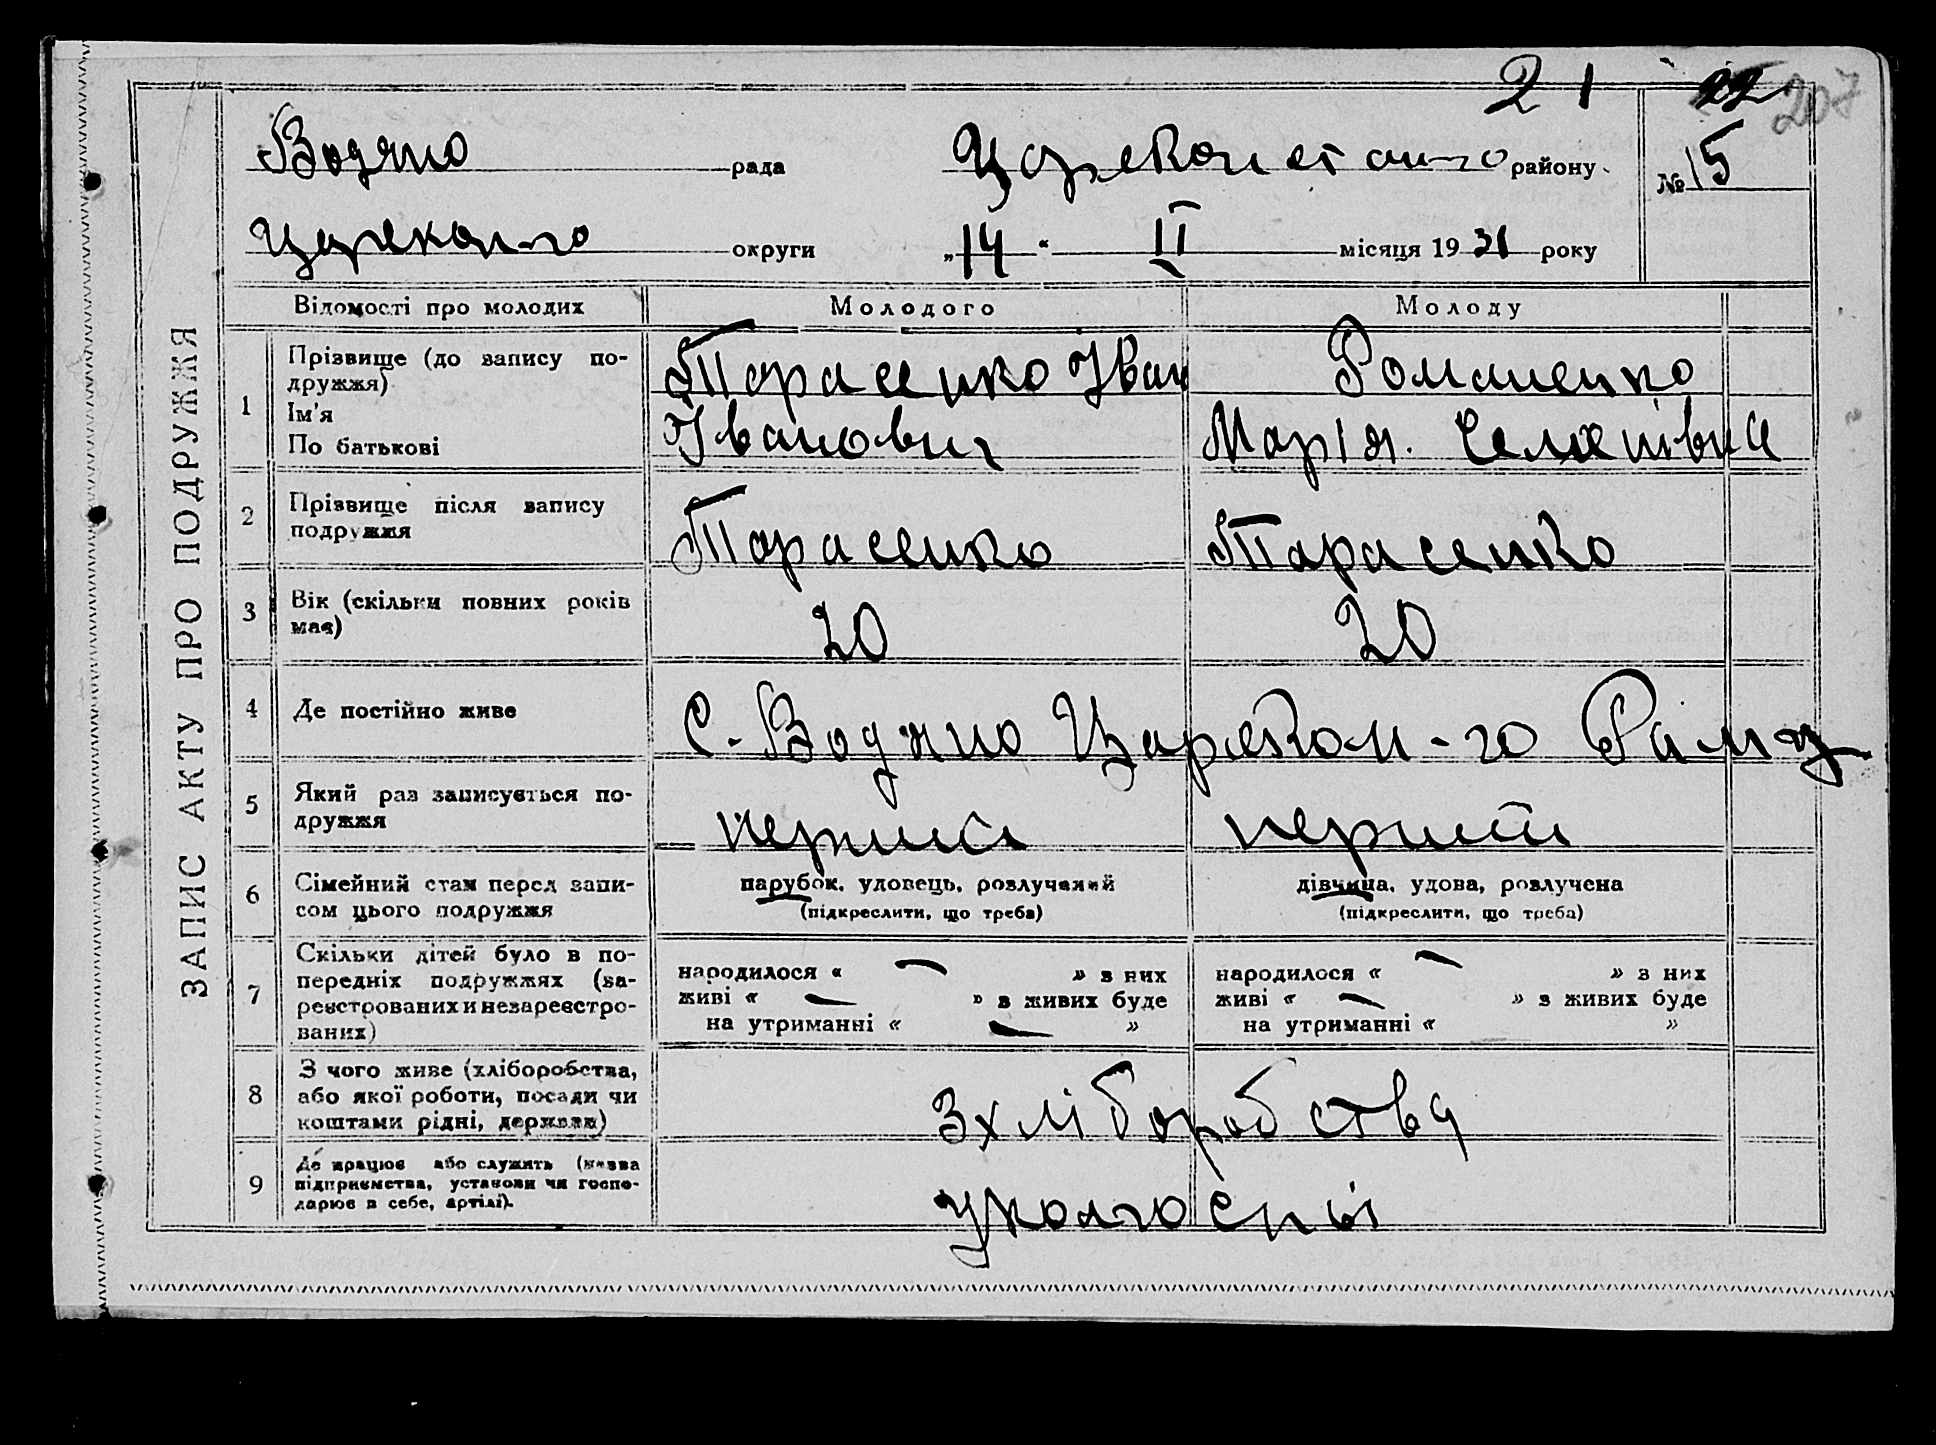 21 22 207
Водяно рада Цареконстан-го району. № 15
Царекон-го округи „14" II місяця 1931 року
ЗАПИС АКТУ ПРО ПОДРУЖЖЯ
Відомості про молодих Молодого Молоду
1 Прізвище (до запису по-
дружжя)
Ім'я
По батькові
Тарасенко Іван
Іванович
Романенко
Марія.
2 Прізвище після запису
подружжя
Тарасенко Тарасенко
3 Вік (скільки повних років
має)
20 20
4 Де постійно живе
С. Водяно Царекон-го Рану
5 Який раз записується по-
дружжя
перший перший
6 Сімейний стан перед запи-
сом цього подружжя
парубок, удовець, розлучений
(підкреслити, що треба)
дівчина, удова, розлучена
(підкреслити, що треба)
7 Скільки дітей було в по-
передніх подружжях (за-
реєстрованих и незареєстро-
ваних)
народилося « — » з них
живі « — » з живих буде
на утриманні « — »
народилося « — » з них
живі « — » з живих буде
на утриманні « »
8 З чого живе (хліборобства,
або якої роботи, посади чи
коштами рідні, держави)
З хліборобства
9 Де працює або служить (назва
підприємства, установи чи госпо-
дарює в себе, артілі).
у колгоспы